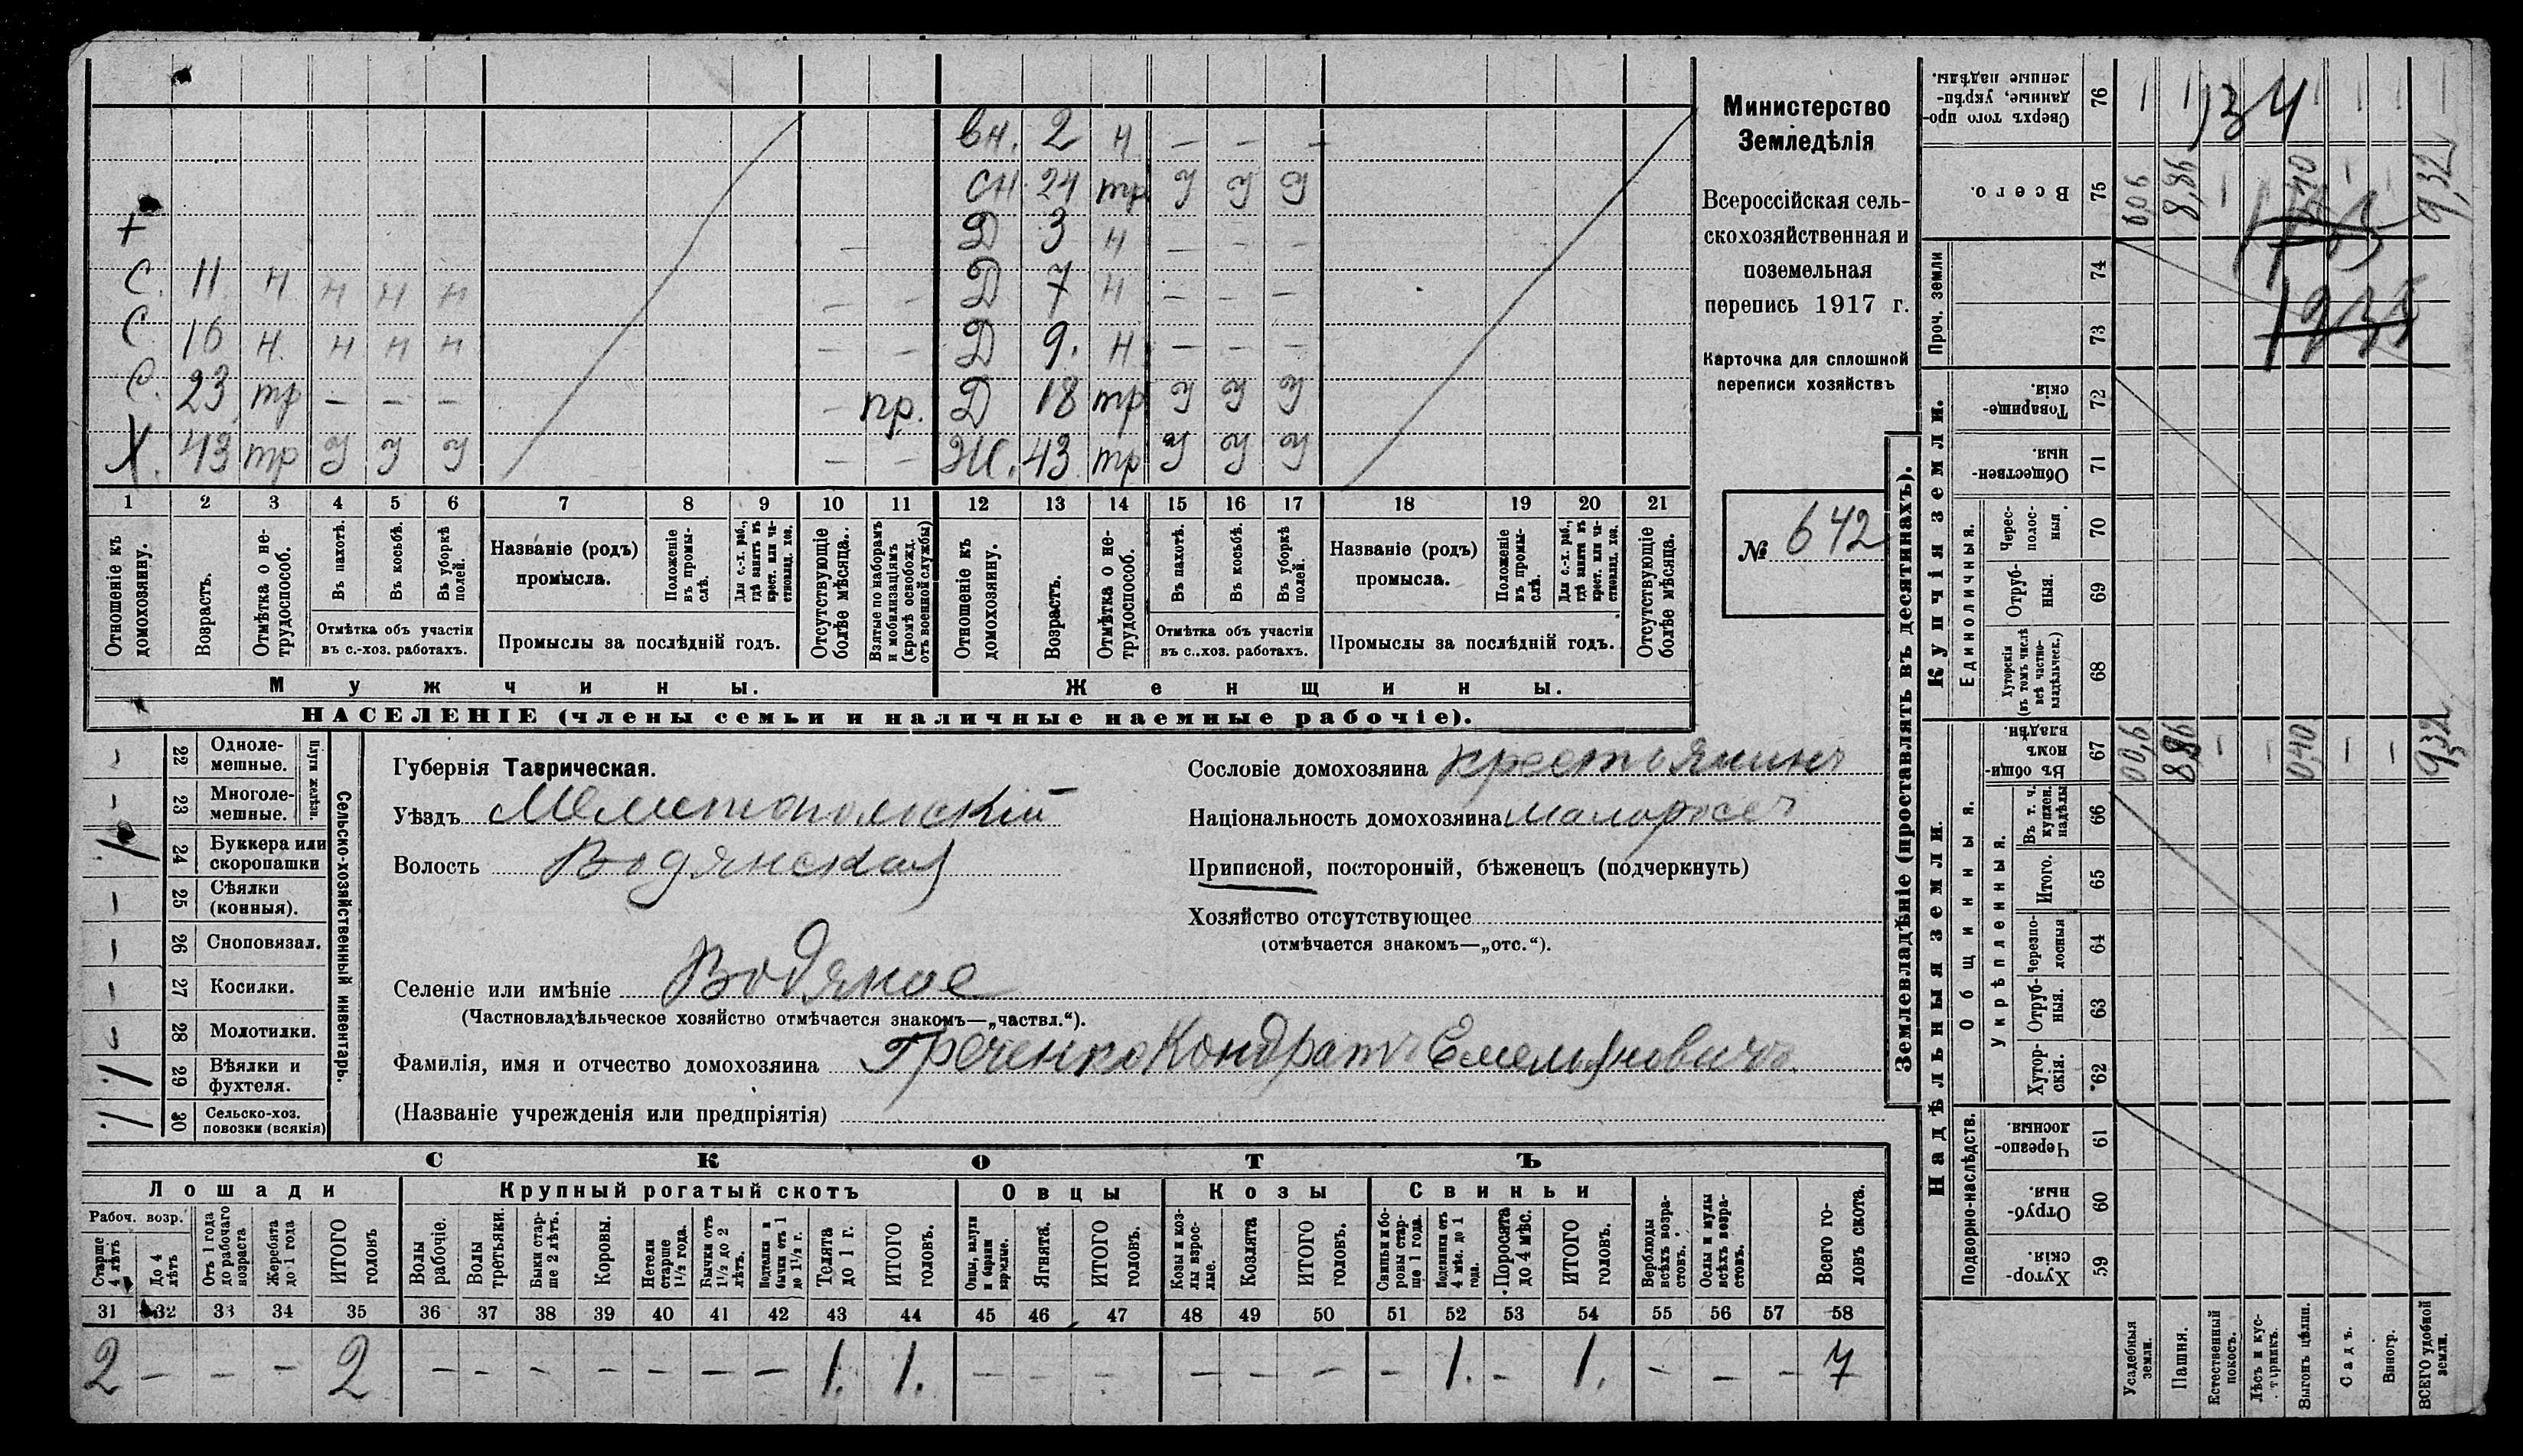 вн. 2 н - - -
сн. 24 тр У У У
+ Д 3 н - - -
С. 11 н н н н - - Д 7 н - - -
С. 16 н. н н н - - Д 9. н - - -
С. 23 тр - - - - пр. Д 18 тр У У У
Х. 43 тр У У У - - Ж. 43 тр У У У
1 2 3 4 5 6 7 8 9 10 11 12 13 14 15 16 17 18 19 20 21
Отношеніе къ домохозяину.
Возрастъ.
Отмѣтка о не-трудоспособ.
Въ пахотѣ.
Въ косьбѣ.
Въ уборкѣ полей.
Отмѣтка объ участіи
въ с.-хоз. работахъ.
Названіе (родъ)
промысла.
Положеніе въ промы-слѣ.
Для с.-х. раб., гдѣ занятъ въ крест. или ча-стновлад. хоз.
Промыслы за послѣдній годъ.
Отсутствующіе болѣе мѣсяца..
Взятые по наборамъ и мобилизаціямъ (кромѣ освобожд. отъ военной службы)
Отношеніе къ домохозяину.
Возрастъ.
Отмѣтка о не-трудоспособ.
Въ пахотѣ.
Въ косьбѣ.
Въ уборкѣ полей.
Отмѣтка объ участіи
въ с..хоз. работахъ.
Названіе (родъ)
промысла.
Положеніе въ промы-слѣ.
Для с.-х. раб., гдѣ занятъ въ крест. или ча-стновлад. хоз.
Промыслы за послѣдній годъ.
Отсутствующіе болѣе мѣсяца.
Мужчины. Женщины.
НАСЕЛЕНІЕ (члены семьи и наличные наемные рабочіе).
Министерство
Земледѣлія
Всероссійская сель-
скохозяйственная и
поземельная
перепись 1917 г.
Карточка для сплошной
переписи хозяйствъ
№ 642
Сельско-хозяйственный инвентарь.
Плуги желѣзн.
- 22 Одноле-мешные.
- 23 Многоле-мешные.
1 24 Буккера или скоропашки
- 25 Сѣялки (конныя).
- 26 Сноповязал.
- 27 Косилки.
- 28 Молотилки.
1 29 Вѣялки и фухтеля.
1 30 Сельско-хоз. повозки (всякія)
Губернія Таврическая.
Уѣздъ Мелитопольскій
Волость Водянская
Сословіе домохозяина крестьянинъ
Національность домохозяина малоросъ
Приписной, посторонній, бѣженецъ (подчеркнуть)
Хозяйство отсутствующее
(отмѣчается знакомъ—„отс.“).
Селеніе или имѣніе Водяное
(Частновладѣльческое хозяйство отмѣчается знакомъ—„частвл.“).
Фамилія, имя и отчество домохозяина Греченко Кондратъ Емельяновичъ.
(Названіе учрежденія или предпріятія)
СКОТЪ
Лошади Крупный рогатый скотъ Овцы Козы Свиньи
Рабоч. возр.
Старше 4 лѣтъ
До 4 лѣтъ
Отъ 1 года до рабочаго возраста
Жеребята до 1 года
ИТОГО головъ
Волы рабочіе.
Волы третьяки.
Быки стар-ше 2 лѣтъ.
Коровы.
Нетели старше 1½ года.
Бычки отъ 1½ до 2 лѣтъ.
Подтелки и бычки отъ 1 до 1½ г.
Телята до 1 г.
ИТОГО головъ.
Овцы, валухи и бараны взрослые.
Ягнята.
ИТОГО головъ.
Козы и коз-лы взрос-лые.
Козлята
ИТОГО головъ.
Свиньи и бо-ровы стар-ше 1 года.
Подсвинки отъ 4 мѣс. до 1 года.
Поросята до 4 мѣс.
ИТОГО головъ.
Верблюды всѣхъ возра-стовъ.
Ослы и мулы всѣхъ возра-стовъ.
Всего го-ловъ скота.
31 32 33 34 35 36 37 38 39 40 41 42 43 44 45 46 47 48 49 50 51 52 53 54 55 56 57 58
2 - - - 2 - - - - - - - 1. 1. - - - - - - - 1. - 1. - - - 7
Землевладѣніе (проставлять въ десятинахъ).
Купчія земли.
Надѣльныя земли.
Сверхъ того про-данные, укрѣп-ленные надѣлы. 76
134
Всего. 75 0,06 8,86 - 0,40 - - 9,32
Проч. земли 74 73
1935
Товарище-скія. 72
Обществен-ныя. 71
Единоличныя.
Черес-полос-ныя. 70
Отруб-ныя. 69
Хуторскія (въ томъ числѣ всѣ частно-владѣльческ.) 68
Общинныя.
Въ общин-номъ владѣн. 67 00,6 8,86 - - 0,40 - - 9,32
Укрѣпленныя.
Въ т. ч. куплен. надѣлы 66
Итого. 65
Черезпо-лосныя 64
Отруб-ныя. 63
Хутор-скія. 62
Подворно-наслѣдств.
Черезпо-лосныя. 61
Отруб-ныя. 60
Хутор-скія. 59
Усадебныя земли.
Пашня.
Естественный покосъ.
Лѣсъ и кус-тарникъ.
Выгонъ цѣлин.
Садъ.
Виногр.
ВСЕГО удобной земли.